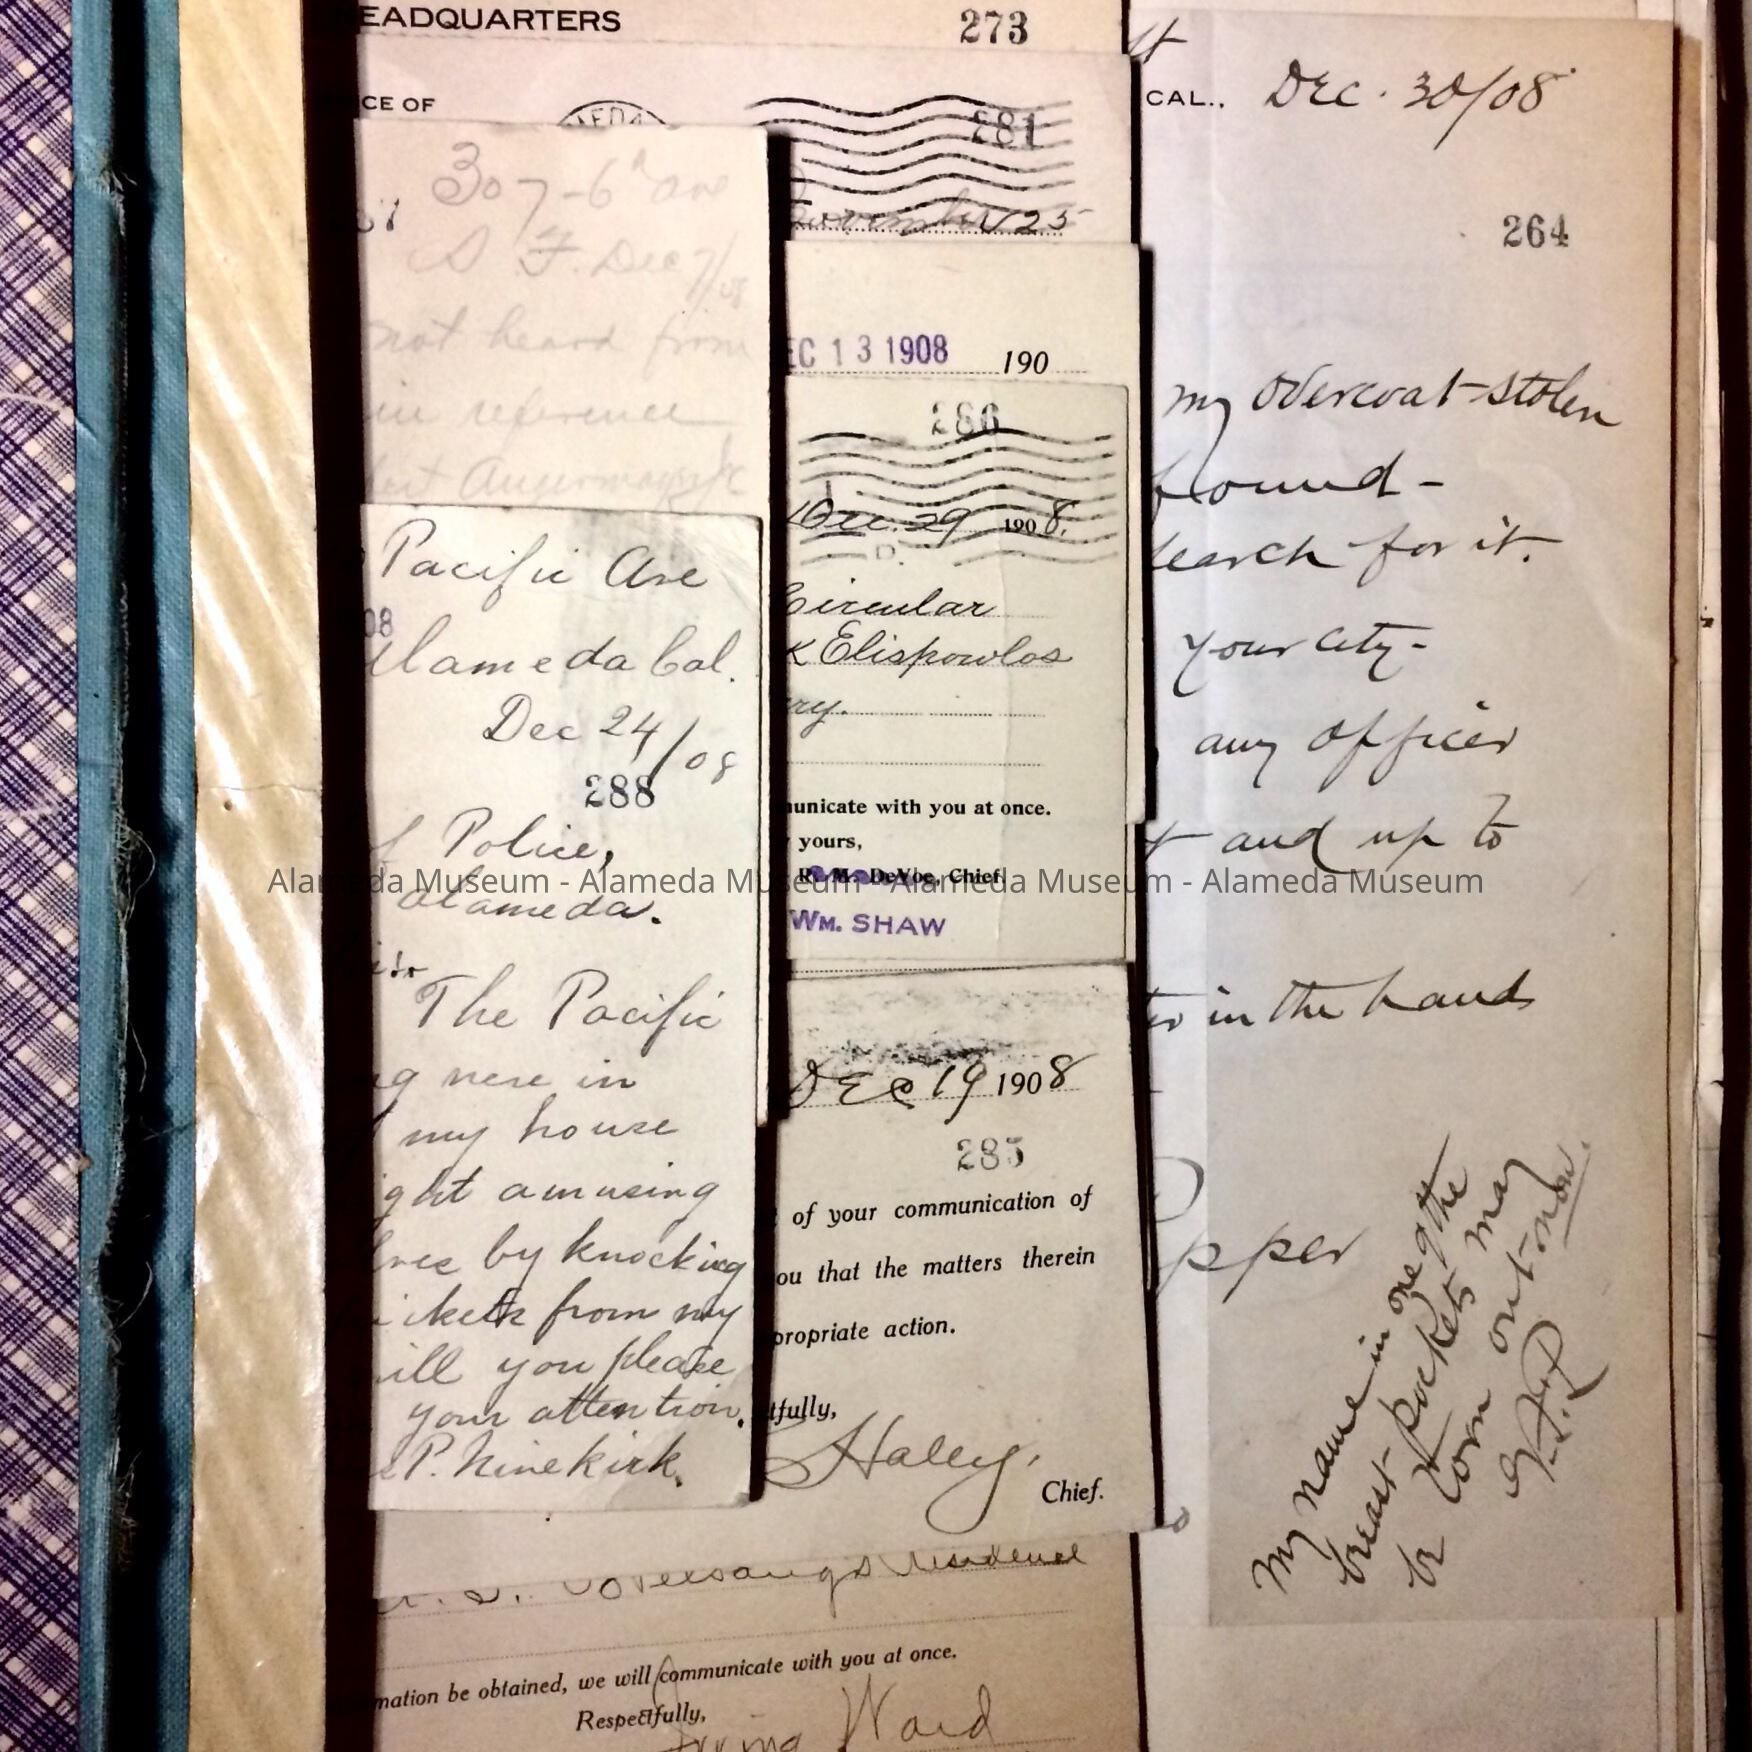 EADQUARTERS 273
CE OF
281
November 25
307-6th Ave
S. F. Dec 7/08
not heard from
in reference
EC 13 1908 190
286
Dec. 29 1908.
Circular
k Elispowlos
ry.
municate with you at once.
yours,
R. M. DeVoe, Chief
WM. SHAW
Pacific Ave
08
Alameda Cal.
Dec 24/08
288
f Police,
Alameda.
The Pacific
g nere in
my house
ght amusing
lves by knocking
ickets from my
ill you please
your attention.
P. Ninekirk.
Dec 19 1908
285
of your communication of
ou that the matters therein
propriate action.
tfully,
Haley,
Chief.
residence
mation be obtained, we will communicate with you at once.
Respectfully,
Irving Ward
CAL., Dec. 30/08
264
my overcoat-stolen
found-
search for it.
your city-
any officer
and up to
in the hands
pper
My name in one of the
breast pockets may
be torn out now.
Alameda Museum - Alameda Museum - Alameda Museum - Alameda Museum